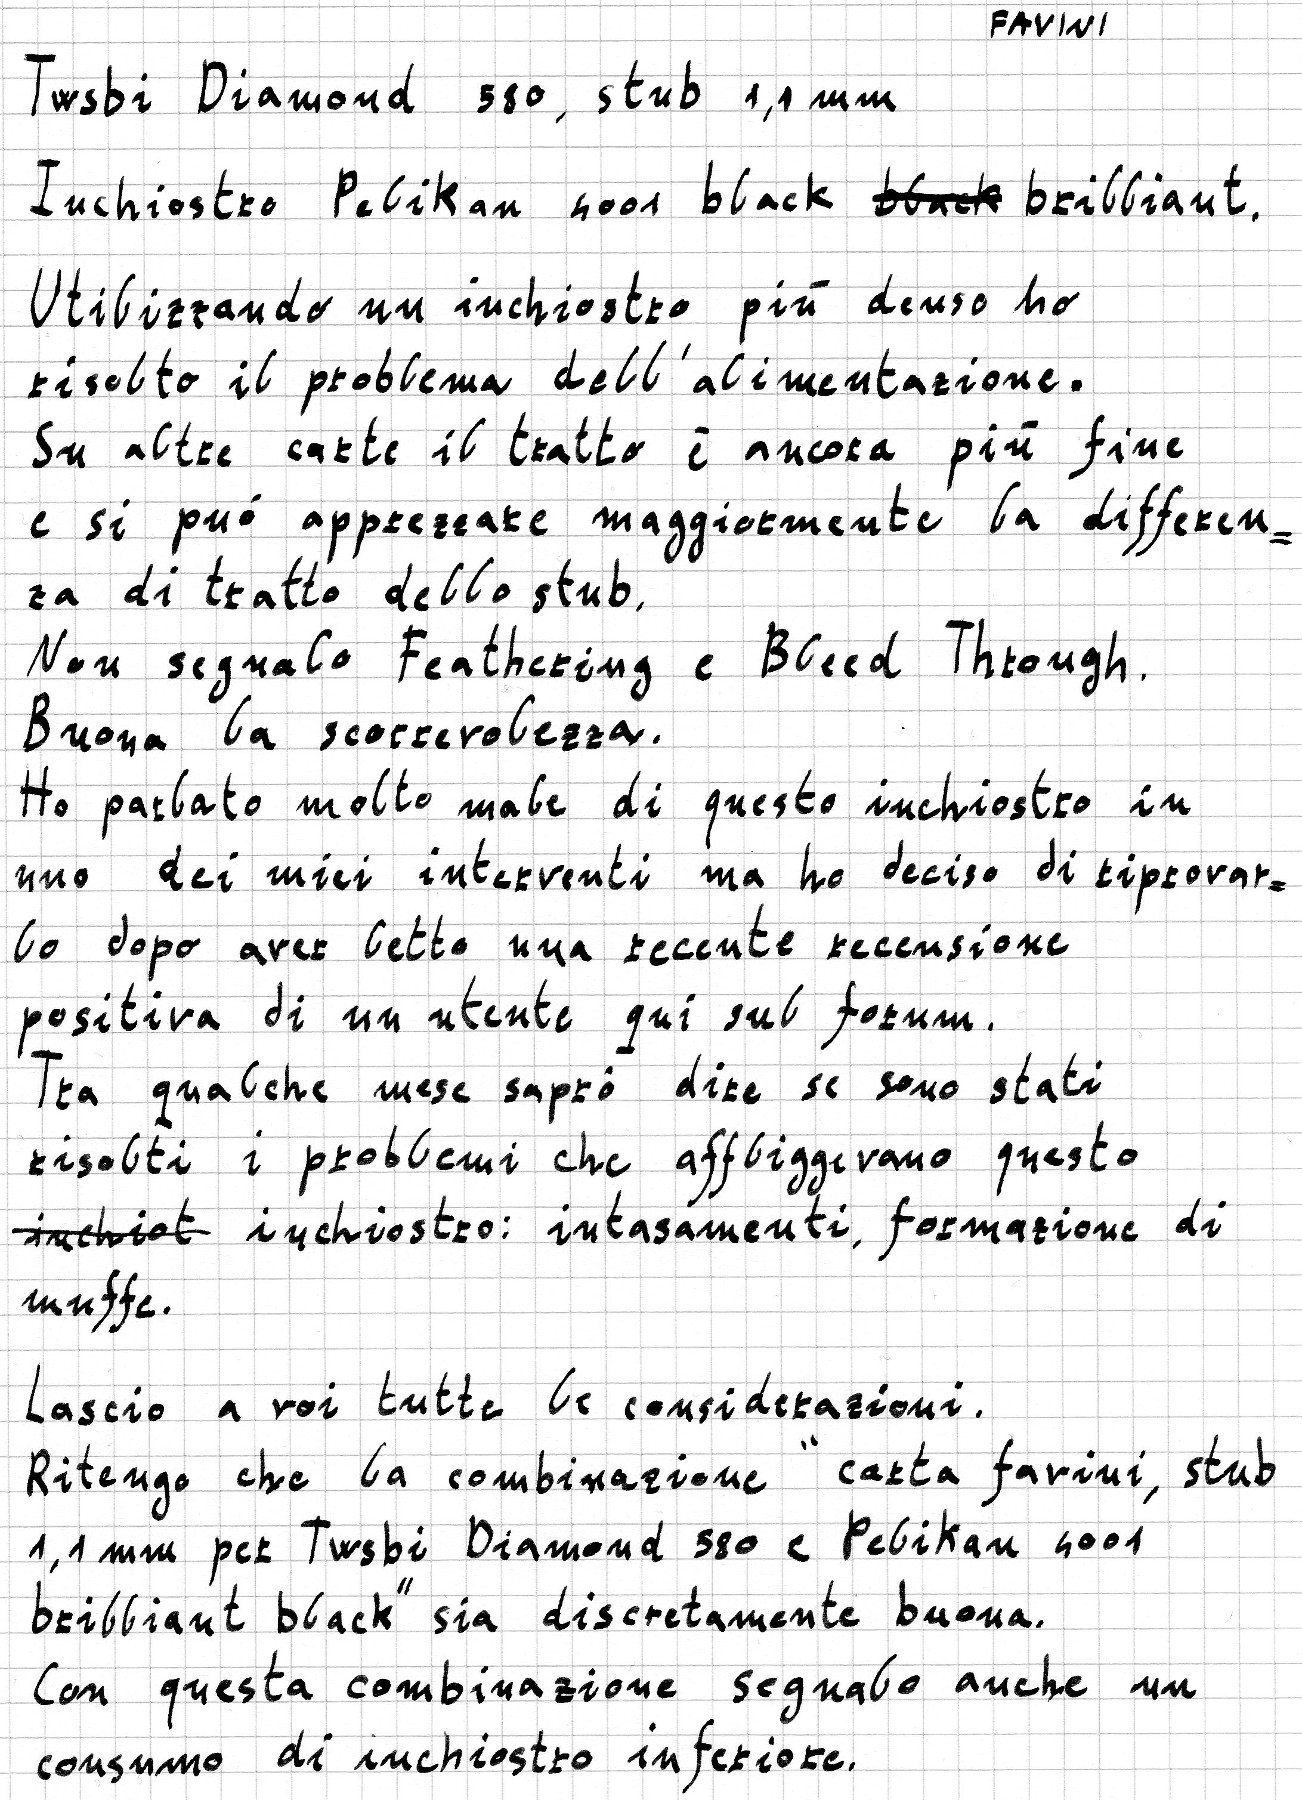 FAVINI
Twsbi Diamond 580, stub 1,1 mm
Inchiostro Pelikan 4001 black black brilliant.
Utilizzando un inchiostro più denso ho
risolto il problema dell'alimentazione.
Su altre carte il tratto è ancora più fine
e si può apprezzare maggiormente la differen=
za di tratto dello stub.
Non segnalo Feathering e Bleed Through.
Buona la scorrevolezza.
Ho parlato molto male di questo inchiostro in
uno dei miei interventi ma ho deciso di riprovar=
lo dopo aver letto una recente recensione
positiva di un utente qui sul forum.
Tra qualche mese saprò dire se sono stati
risolti i problemi che affliggevano questo
inchiot inchiostro: intasamenti, formazione di
muffe.
Lascio a voi tutte le considerazioni.
Ritengo che la combinazione "carta favini, stub
1,1 mm per Twsbi Diamond 580 e Pelikan 4001
brilliant black" sia discretamente buona.
Con questa combinazione segnalo anche un
consumo di inchiostro inferiore.